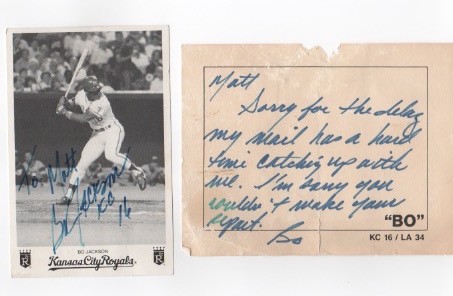 To, Matt
Bo Jackson
KC
16
BO JACKSON
Kansas City Royals
Matt
Sorry for the delay
my mail has a hard
time catching up with
me. I'm sorry you
couldn't make your
Bo
"BO"
KC 16 / LA 34